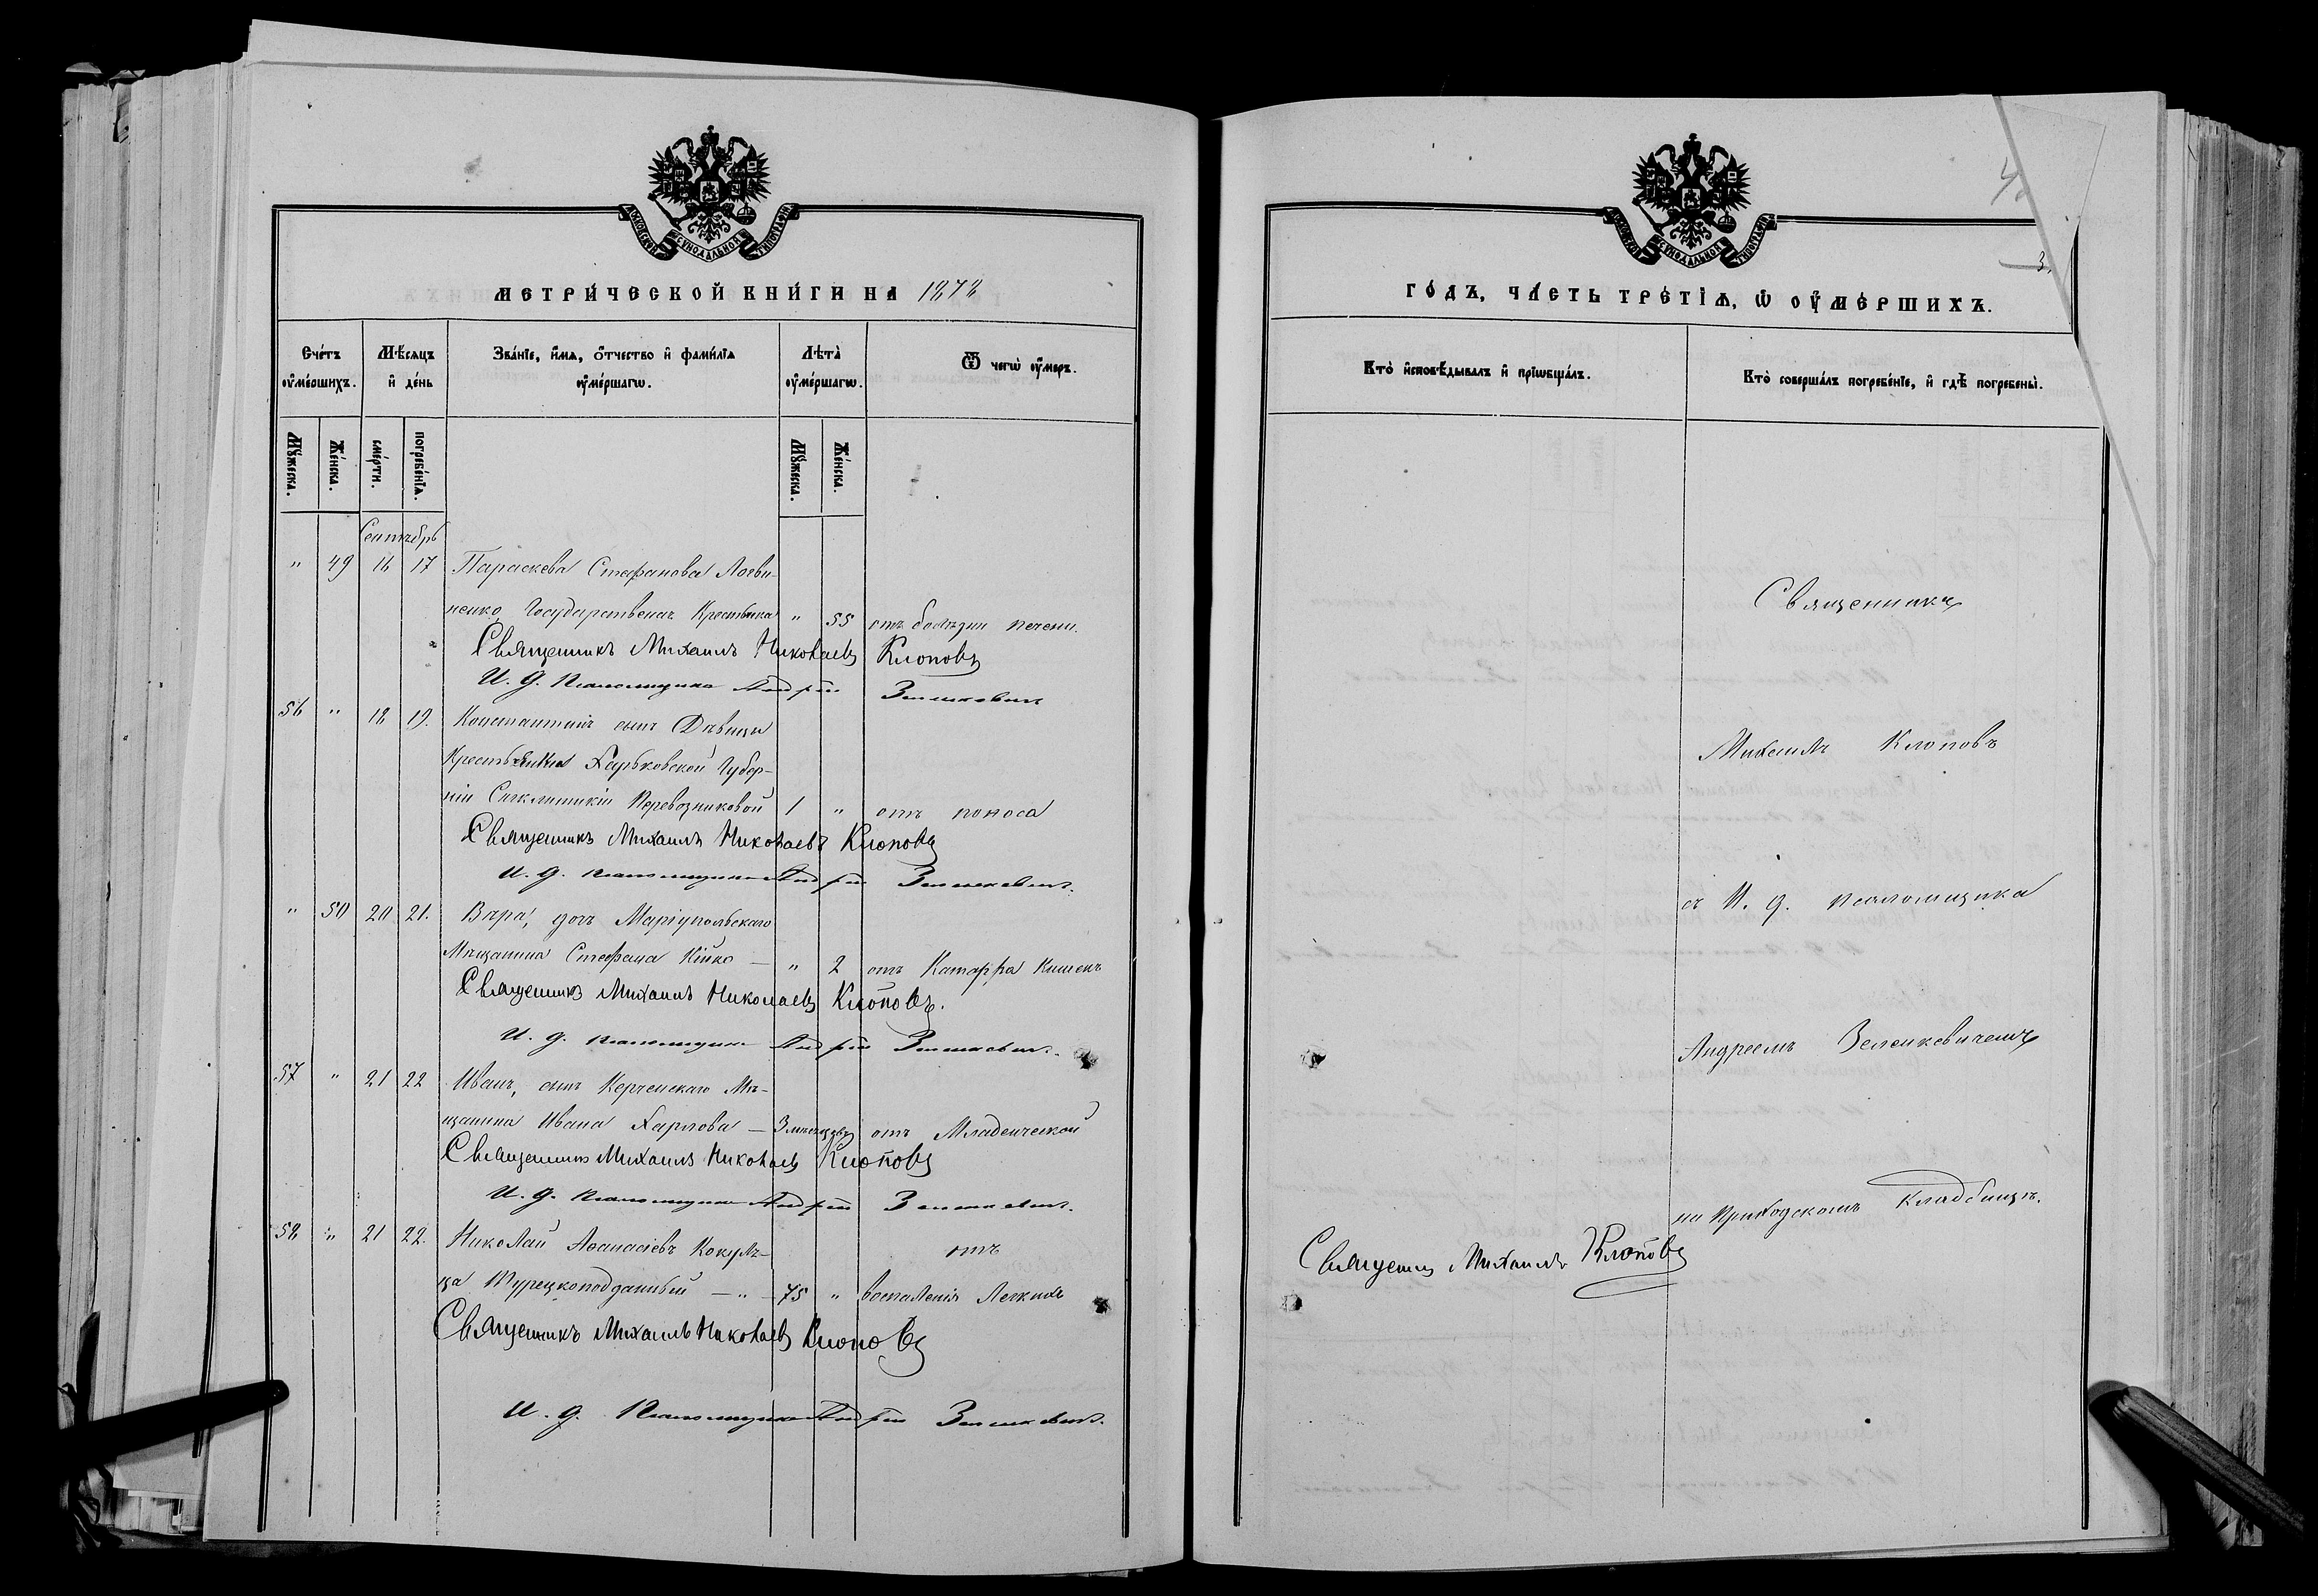 МОСКОВСКОЙ СУНОДАЛЬНОЙ ТИПОГРАФІИ
МЕТРИ́ЧЕСКОЙ КНИ́ГИ НА 1878
Сче́тъ ᲂу҆ме́ршихъ.
Мѣ́сяцъ и҆ де́нь
Зва́нїе, и҆́мѧ, ѻ҆́тчество и҆ фами́лїѧ ᲂу҆ме́ршагѡ.
Лѣта̀ ᲂу҆ме́ршагѡ.
Ѿ чегѡ̀ ᲂу҆́меръ.
Мꙋ́жеска.
Же́нска.
сме́рти.
погребе́нїѧ.
Мꙋ́жеска.
Же́нска.
Сентябрь
" 49 16 17 Параскева Стефанова
ненко, Государственая Крестьянка " 55 отъ болѣзни печени.
Священникъ Михаилъ Николаевъ Клоповъ
И. д. Псаломщика Андрей Зеленкевичъ
56 " 18 19. Константинъ сынъ Дѣвицы
Крестьянки Харьковской Губер-
ніи Перевозниковой 1 " отъ поноса
Священникъ Михаилъ Николаевъ Клоповъ
И. д. Псаломщика Андрей Зеленкевичъ.
" 50 20 21. Вѣра, дочь Маріупольскаго
Мѣщанина Стефана Кійко — " 2 отъ Катарра Кишекъ
Священникъ Михаилъ Николаевъ Клоповъ.
И. д. Псаломщика Андрей Зеленкевичъ.
57 " 21 22 Иванъ, сынъ Керченскаго Мѣ-
щанина Ивана Харлова — 3 мѣсяцевъ отъ Младенческой
Священникъ Михаилъ Николаевъ Клоповъ
И. д. Псаломщика Андрей Зеленкевичъ.
58 " 21 22. Николай Аѳанасіевъ отъ
ца Турецкоподданный — " — 75 " воспаленія Легкихъ
Священникъ Михаилъ Николаевъ Клоповъ
И. д. Псаломщика Андрей Зеленкевичъ.
МОСКОВСКОЙ СУНОДАЛЬНОЙ ТИПОГРАФІИ
3.
ГО́ДЪ, ЧА́СТЬ ТРЕ́ТЇѦ, Ѡ҆ ОУ҆МЕ́РШИХЪ.
Кто̀ и҆сповѣ́дывалъ и҆ прїѡбща́лъ.
Кто̀ соверша́лъ погребе́нїе, и҆ гдѣ̀ погребены̀.
Священникъ
Михаилъ Клоповъ
съ И. д. псаломщика
Андреемъ Зеленкевичемъ
на приходскомъ кладбищѣ.
Священникъ Михаилъ Клоповъ